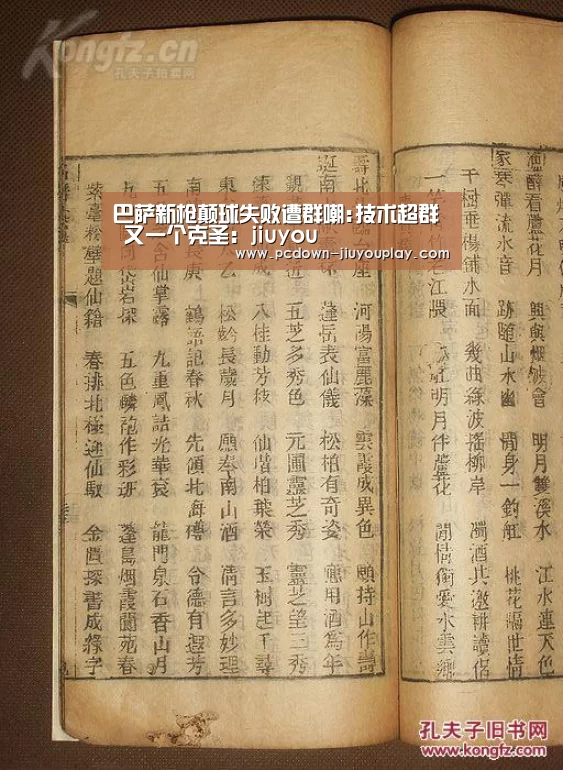 Kongfz.cn
孔夫子旧書网
巴萨新枪颠球失败遭群嘲:技术超群
又一个克圣: jiuyou
www.pcdown-jiuyouplay.com
月 興與烟波會 明月雙溪水 江水連天色
家寒彈流水音 跡隨山水幽 閒身一釣舡 桃花隔世情
千樹垂傷鋪水面 幾曲綠波搖柳岸 濁酒共邀耕讀侶
江隈 明月伴蘆花 閒情衡愛水雲鄉
河陽富麗藻 雲霞成異色 願持山作壽
蓬岳表仙儀 松柏有奇姿 應用酒為年
五芝多秀色 元圃靈芝秀 靈芝望三秀
八桂動芳枝 仙階柏葉榮 玉樹起千尋
松齡長歲月 願奉南山酒 清言多妙理
長庚 鶴語記春秋 先傾北海樽 令德有遐芳
含仙掌露 九重鳳詔光華袞 龍門泉石香山月
岱岩深 五色麟袍作彩斑 蓬島烟霞閬苑春
紫毫粉壁題仙籍 春排北極迎仙馭 金匱琛書成綠字
孔夫子旧书网
www.kongfz.com